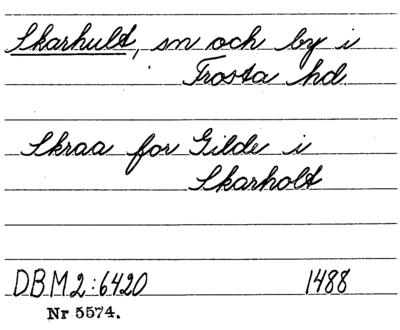 Skarhult, sn och by i
Frosta hd.
Skraa for Gilde i
Skarholt
DBM2:6420 1488
Nr 5574.